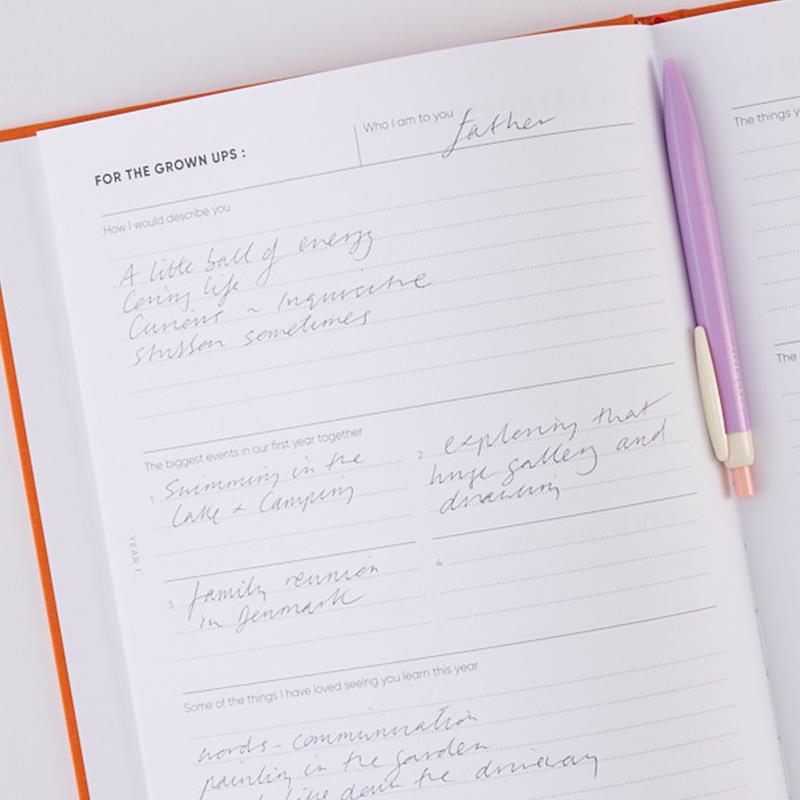 FOR THE GROWN UPS :
Who I am to you father
How I would describe you
A little ball of energy
Loving life
Curious ~ Inquisitive
stubborn sometimes
The biggest events in our first year together
1. Swimming in the
Lake & Camping
2. exploring that
huge gallery and
drawing
3. family reunion
in Denmark
4.
YEAR 1
Some of the things I have loved seeing you learn this year
words - communication
painting in the garden
bike down the driveway
The things y
The